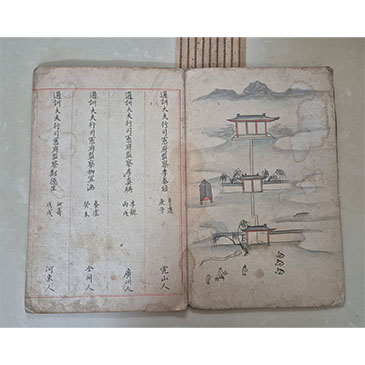 通訓大夫行司憲府監察李泰
庚子
完山人
通訓大夫行司憲府監察李
丙戌
廣州人
通訓大夫行司憲府監察柳宜涵
癸未
全州人
通訓大夫行司憲府監察鄭
戊戌
河東人